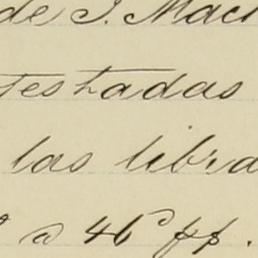 de J. Mac
testadas
las libra
a 46 ff.